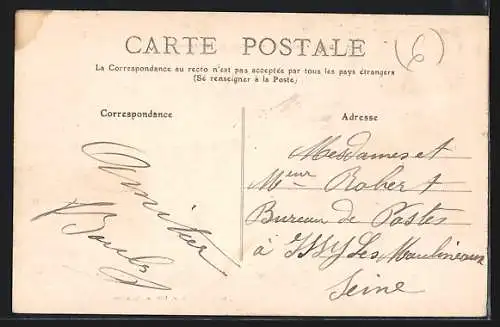 CARTE POSTALE
(6)
La Correspondance au recto n'est pas acceptée par tous les pays étrangers
(Se renseigner à la Poste)
Correspondance
Adresse
Amitier
Mesdames et
Meur Robert
Bureau de Postes
à ISSY Les Moulineaux
Seine